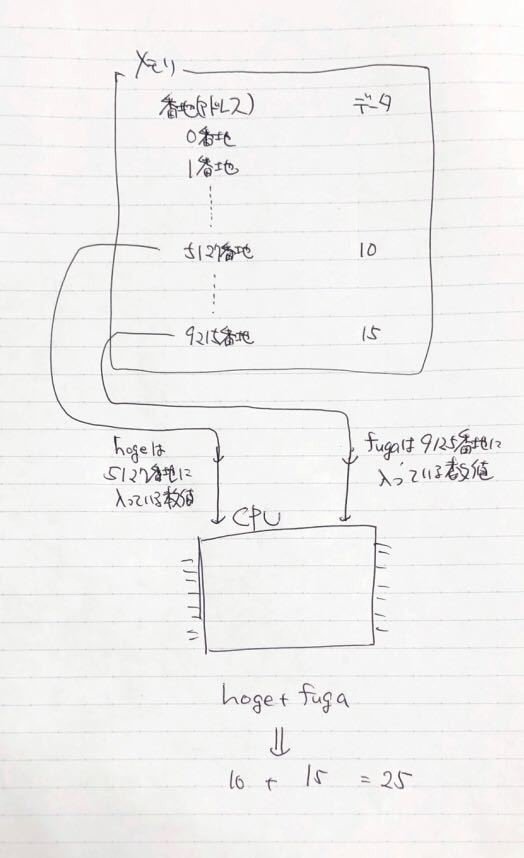 メモリ
番地(アドレス) データ
0番地
1番地
5127番地 10
9215番地 15
hogeは
5127番地に
入っている数値
fugaは9125番地に
入っている数値
CPU
hoge + fuga
⇓
10 + 15 = 25